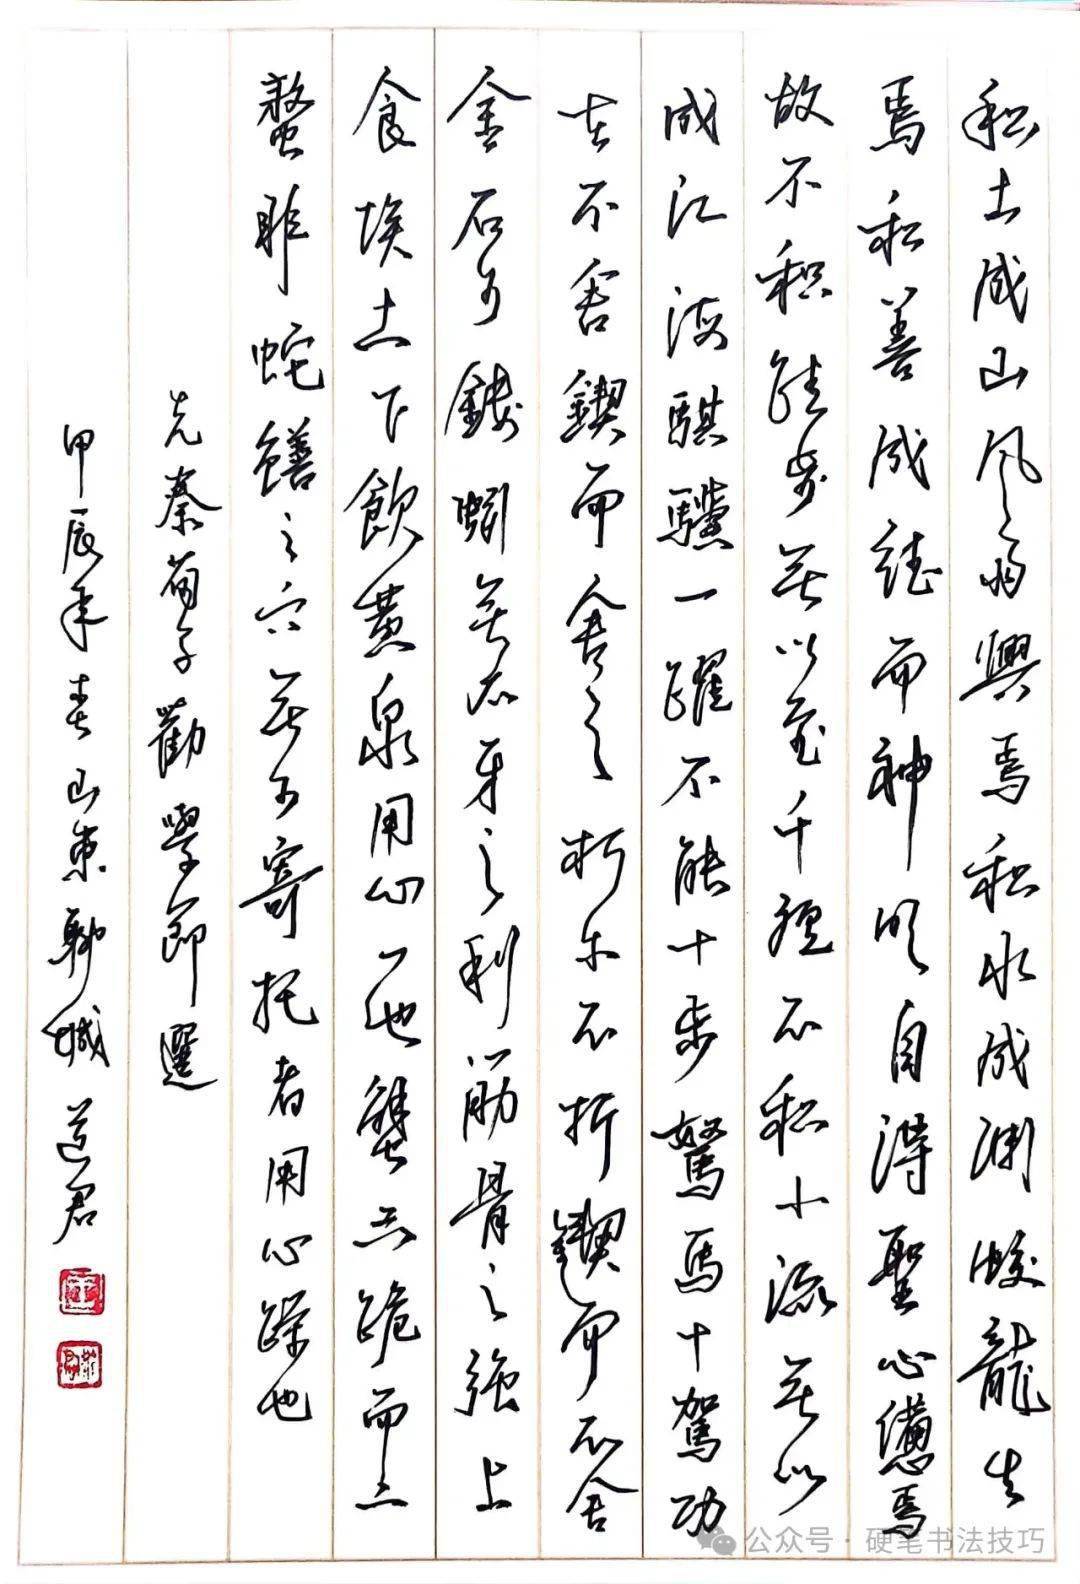 积土成山风雨興焉积水成渊蛟龍生
焉积善成德而神明自得聖心備焉
故不积跬步無以至千里不积小流無以
成江海騏驥一躍不能十步駑馬十駕功
在不舍鍥而舍之朽木不折鍥而不舍
金石可鏤蚓無爪牙之利筋骨之强上
食埃土下飲黄泉用心一也蟹六跪而二
螯非蛇鱔之穴無可寄托者用心躁也
先秦荀子勸學節選
甲辰年春山東聊城 道君
公众号·硬笔书法技巧